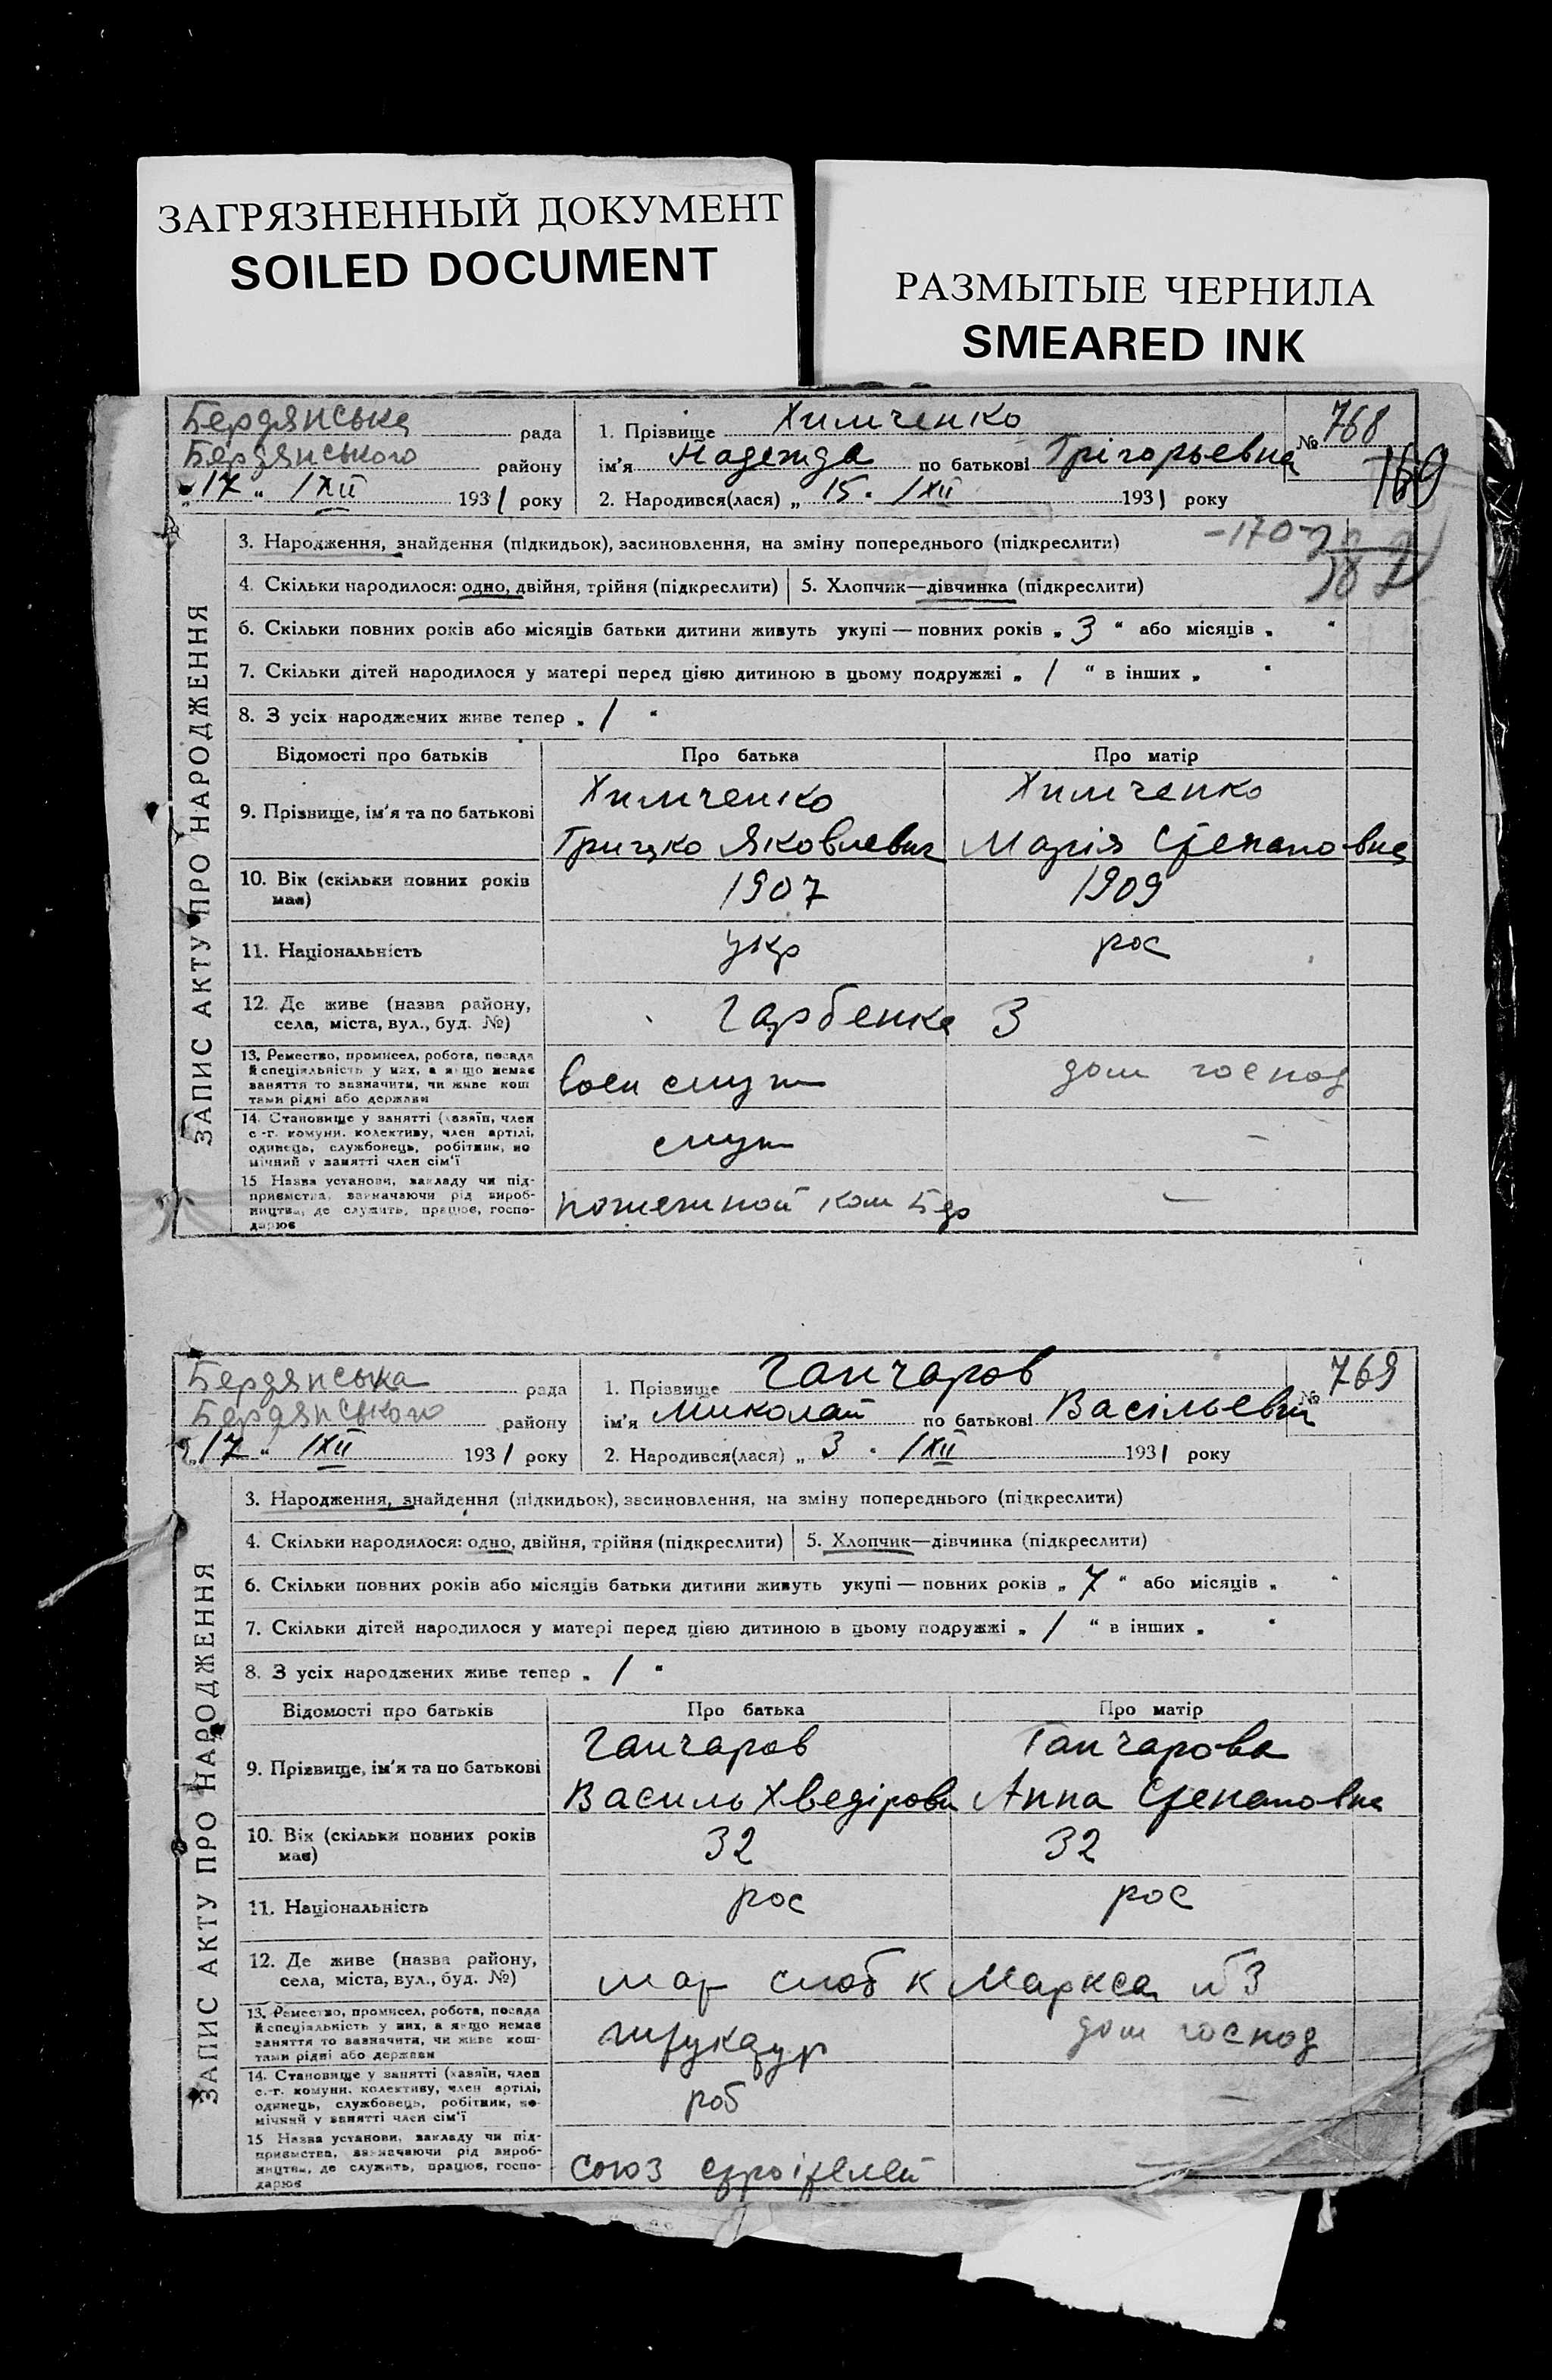 ЗАГРЯЗНЕННЫЙ ДОКУМЕНТ
SOILED DOCUMENT
РАЗМЫТЫЕ ЧЕРНИЛА
SMEARED INK
ЗАПИС АКТУ ПРО НАРОДЖЕННЯ
Бердянська рада
Бердянського району
„17" /XII 1931 року
1. Прізвище Химченко
ім'я Надежда по батькові Грігорьевна
2. Народився(лася) „15" /XII 1931 року
№ 768
169
-170-
382
3. Народження, знайдення (підкидьок), засиновлення, на зміну попереднього (підкреслити)
4. Скільки народилося: одно, двійня, трійня (підкреслити) 5. Хлопчик—дівчинка (підкреслити)
6. Скільки повних років або місяців батьки дитини живуть укупі — повних років „ 3 " або місяців „ "
7. Скільки дітей народилося у матері перед цією дитиною в цьому подружжі „ / " в інших „ "
8. З усіх народжених живе тепер „ / "
Відомості про батьків Про батька Про матір
9. Прізвище, ім'я та по батькові
Химченко Химченко
Грицко Яковлевич Марія Степановна
10. Вік (скільки повних років має) 1907 1909
11. Національність укр рос
12. Де живе (назва району, села, міста, вул., буд. №) Гарбенка 3
13. Ремество, промисел, робота, посада й спеціяльність у них, а якщо немає заняття то зазначити, чи живе коштами рідні або держави
воен служ дом господ
14. Становище у занятті (хазяїн, член с.-г. комуни, колективу, член артілі, одинець, службовець, робітник, помічний у занятті член сім'ї
служ –
15 Назва установи, закладу чи підприємства, зазначаючи рід виробництва, де служить, працює, господарює
пожежной ком Бдр –
ЗАПИС АКТУ ПРО НАРОДЖЕННЯ
Бердянська рада
Бердянського району
„17" /XII 1931 року
1. Прізвище Ганчаров
ім'я Миколай по батькові Васільевич
2. Народився(лася) „3" /XII 1931 року
№ 769
3. Народження, знайдення (підкидьок), засиновлення, на зміну попереднього (підкреслити)
4. Скільки народилося: одно, двійня, трійня (підкреслити) 5. Хлопчик—дівчинка (підкреслити)
6. Скільки повних років або місяців батьки дитини живуть укупі — повних років „ 7 " або місяців „ "
7. Скільки дітей народилося у матері перед цією дитиною в цьому подружжі „ / " в інших „ "
8. З усіх народжених живе тепер „ / "
Відомості про батьків Про батька Про матір
9. Прізвище, ім'я та по батькові
Ганчаров Ганчарова
Василь Хведірови Анна Степановна
10. Вік (скільки повних років має) 32 32
11. Національність рос рос
12. Де живе (назва району, села, міста, вул., буд. №) мар слоб К Маркса №3
13. Ремество, промисел, робота, посада й спеціяльність у них, а якщо немає заняття то зазначити, чи живе коштами рідні або держави
штукатур дом господ
14. Становище у занятті (хазяїн, член с.-г. комуни, колективу, член артілі, одинець, службовець, робітник, помічний у занятті член сім'ї
роб –
15 Назва установи, закладу чи підприємства, зазначаючи рід виробництва, де служить, працює, господарює
союз строітелей –